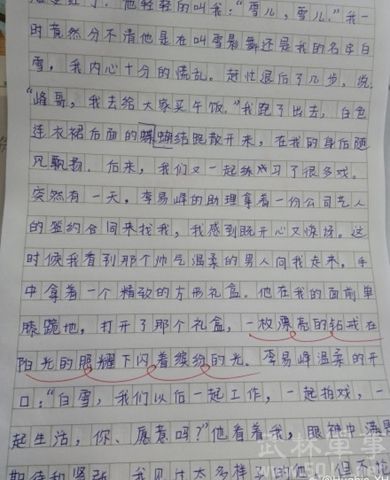 他轻轻的叫我："雪儿,雪儿。"我一
时竟然分不清他是在叫雪舞还是我的名字白
雪，我内心十分的慌乱。赶忙退后了几步，说，
"峰哥，我去给大家买午饭。"我跑了出去，白色
连衣裙后面的蝴蝶结跑散开来，在我的身后随
风飘扬。后来，我们又一起练习了很多戏。
突然有一天，李易峰的助理拿着一份公司艺人
的签约合同来找我，我感到既开心又惊讶。这
时候我看到那个帅气温柔的男人向我走来，手
中拿着一个精致的方形礼盒。他在我的面前单
膝跪地，打开了那个礼盒，一枚漂亮的钻戒在
阳光的照耀下闪着缤纷的光。李易峰温柔的开
口："白雪，我们以后一起工作，一起拍戏，一
起生活，你、愿意吗？"他看着我，眼神中满是
期待和紧张。我见过太多样子的他，但不
武林军事